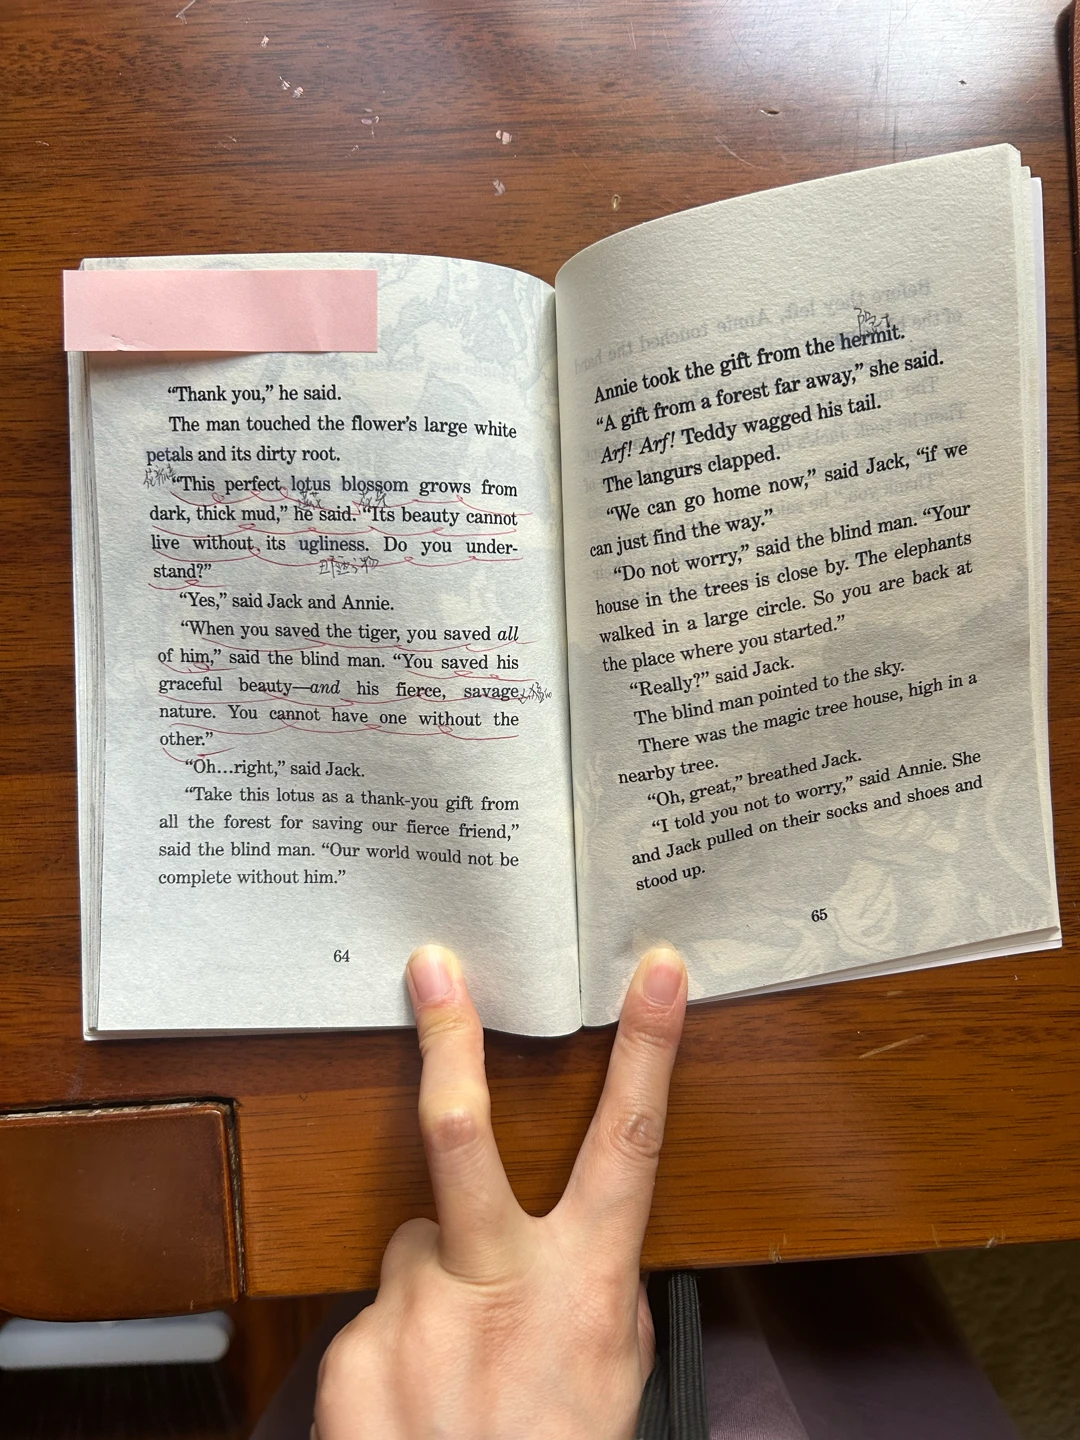 “Thank you,” he said.
The man touched the flower’s large white
petals and its dirty root.
“This perfect lotus blossom grows from
dark, thick mud,” he said. “Its beauty cannot
live without its ugliness. Do you under-
stand?”
“Yes,” said Jack and Annie.
“When you saved the tiger, you saved all
of him,” said the blind man. “You saved his
graceful beauty—and his fierce, savage
nature. You cannot have one without the
other.”
“Oh...right,” said Jack.
“Take this lotus as a thank-you gift from
all the forest for saving our fierce friend,”
said the blind man. “Our world would not be
complete without him.”
64
隐士
Annie took the gift from the hermit.
“A gift from a forest far away,” she said.
Arf! Arf! Teddy wagged his tail.
The langurs clapped.
“We can go home now,” said Jack, “if we
can just find the way.”
“Do not worry,” said the blind man. “Your
house in the trees is close by. The elephants
walked in a large circle. So you are back at
the place where you started.”
“Really?” said Jack.
The blind man pointed to the sky.
There was the magic tree house, high in a
nearby tree.
“Oh, great,” breathed Jack.
“I told you not to worry,” said Annie. She
and Jack pulled on their socks and shoes and
stood up.
65